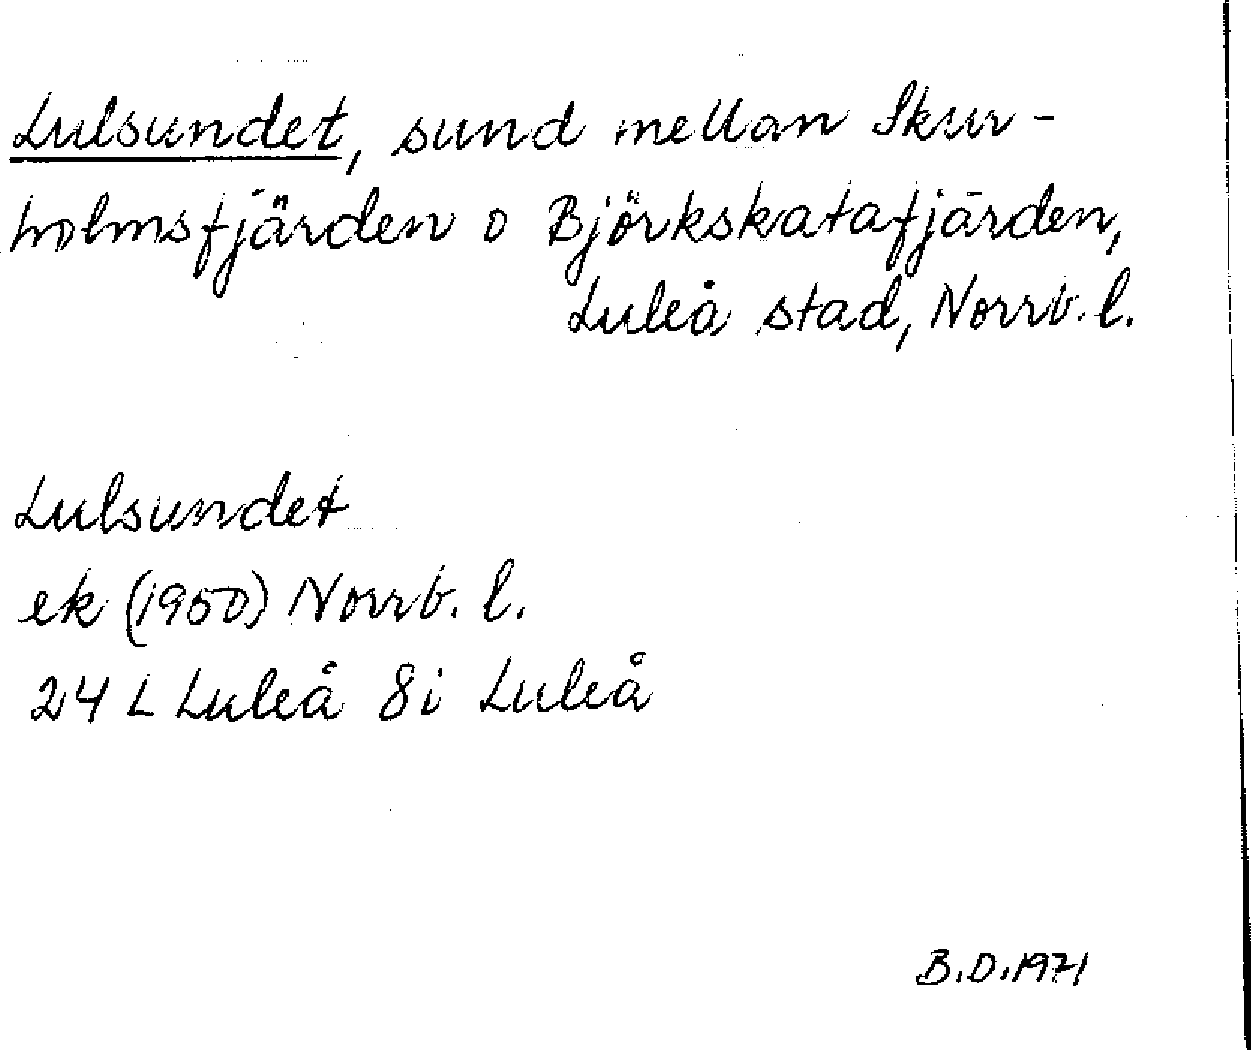 Lulsundet, sund mellan Skur-
holmsfjärden o Björkskatafjärden,
Luleå stad, Norrb. l.
Lulsundet
ek (1950) Norrb. l.
24 L Luleå 8i Luleå
B.D.1971